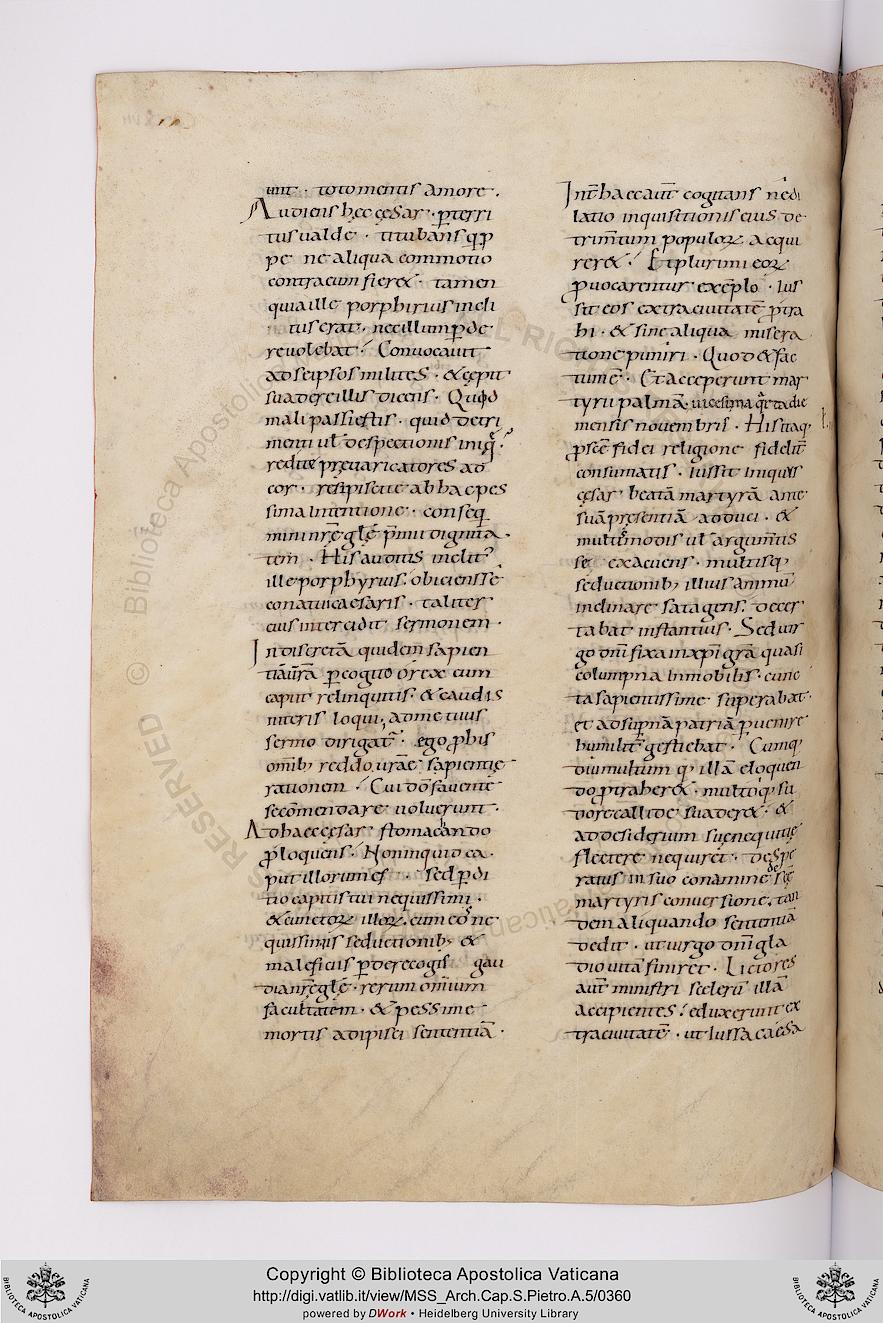 unt · toto mentis amore ·
Audiens hęc cęsar · p̄terri
tus ualde · titubans q; p̱
pe ne aliqua commotio
contra eum fier& · tamen
quia ille porphirius incli
tus erat · nec illum p̱de
re uolebat · Conuocauit
ad se ipsos milites · & cępit
suadere illis dicens · Quid
mali passi estis · quid detri
menti ul̄ despectionis iniq̄
redite pręuaricatores ad
cor · resipiscite ab hac pes
sima intentione · conseq
mini nr̄ę gl̄ę p̄mii dignita
tem · His auditis inclit᾽
ille porphyrius · obiciens se
conatui caesaris · taliter
eius intercidit sermonem ·
Indiscretā quidem sapien
tiā ur̄ā p̱cognoui o rex cum
caput relinquitis · & caudis
interis loqui, ad me tuus
sermo dirigat᷑ · ego p̱ uobis
omib; reddo, urāe sapientię
rationem · Cui dō fauente
se cōmendare uoluerunt ·
Ad haec cęsar stomacando
p̱loquens · Nonne quid ea
put illorum es · sed p̱di
tio capitis tui nequissimi ·
& cunctoꝝ illoꝝ · cum eos ne
quissimis seductionib; &
maleficiis p̱dere cogis gau
dia nr̄ę gl̄ę · rerum omium
facultatem · & pessime
mortis adipisci sententiā ·
Int̄ haec aut̄ cogitans ne di
latio inquisitionis eius de
trim̄tum populoꝝ acqui
rer& · Et plurimi eoꝝ
p̱uocarentur exēplo · ius
sit eos extra ciuitatē p̱tra
hi · & sine aliqua misera
tione puniri · Quod & fac
tum ē · Et acceperunt mar
tyrii palmā · uicesima q̄rta die
mensis nouembris · His itaq;
p̱ xp̄i fidei religione fidelit̄
consumatis · iussit iniquus
cęsar beatā martyrā ante
suā pręsentiā adduci · &
multimodis ul̄ argum̄tis
se exacuens · multisq;
seductionib; illius animū
inclinare satagens, decer
tabat instantius · Sed uir
go dn̄i fixa in xp̄i gr̄a quasi
columpna inmobilis · cunc
ta sapientissime superabat ·
et ad sup̱nā patriā p̱uenire
humilit̄ gestiebat · Cumq;
diu multum q; illā eloquen
do p̱traher& · multoq; su
dore callide suader& · &
ad desiderium suę nequitię
flectere nequiret · despe
ratus in suo conamine de scę
martyris conuersione, tan
dem aliquando sententiā
dedit · ut uirgo dn̄i gla
dio uitā finiret · Lictores
aut̄ ministri scelerū illā
accipientes · eduxerunt ex
tra ciuitatē · ut iussa caesa
Copyright © Biblioteca Apostolica Vaticana
http://digi.vatlib.it/view/MSS_Arch.Cap.S.Pietro.A.5/0360
powered by DWork • Heidelberg University Library